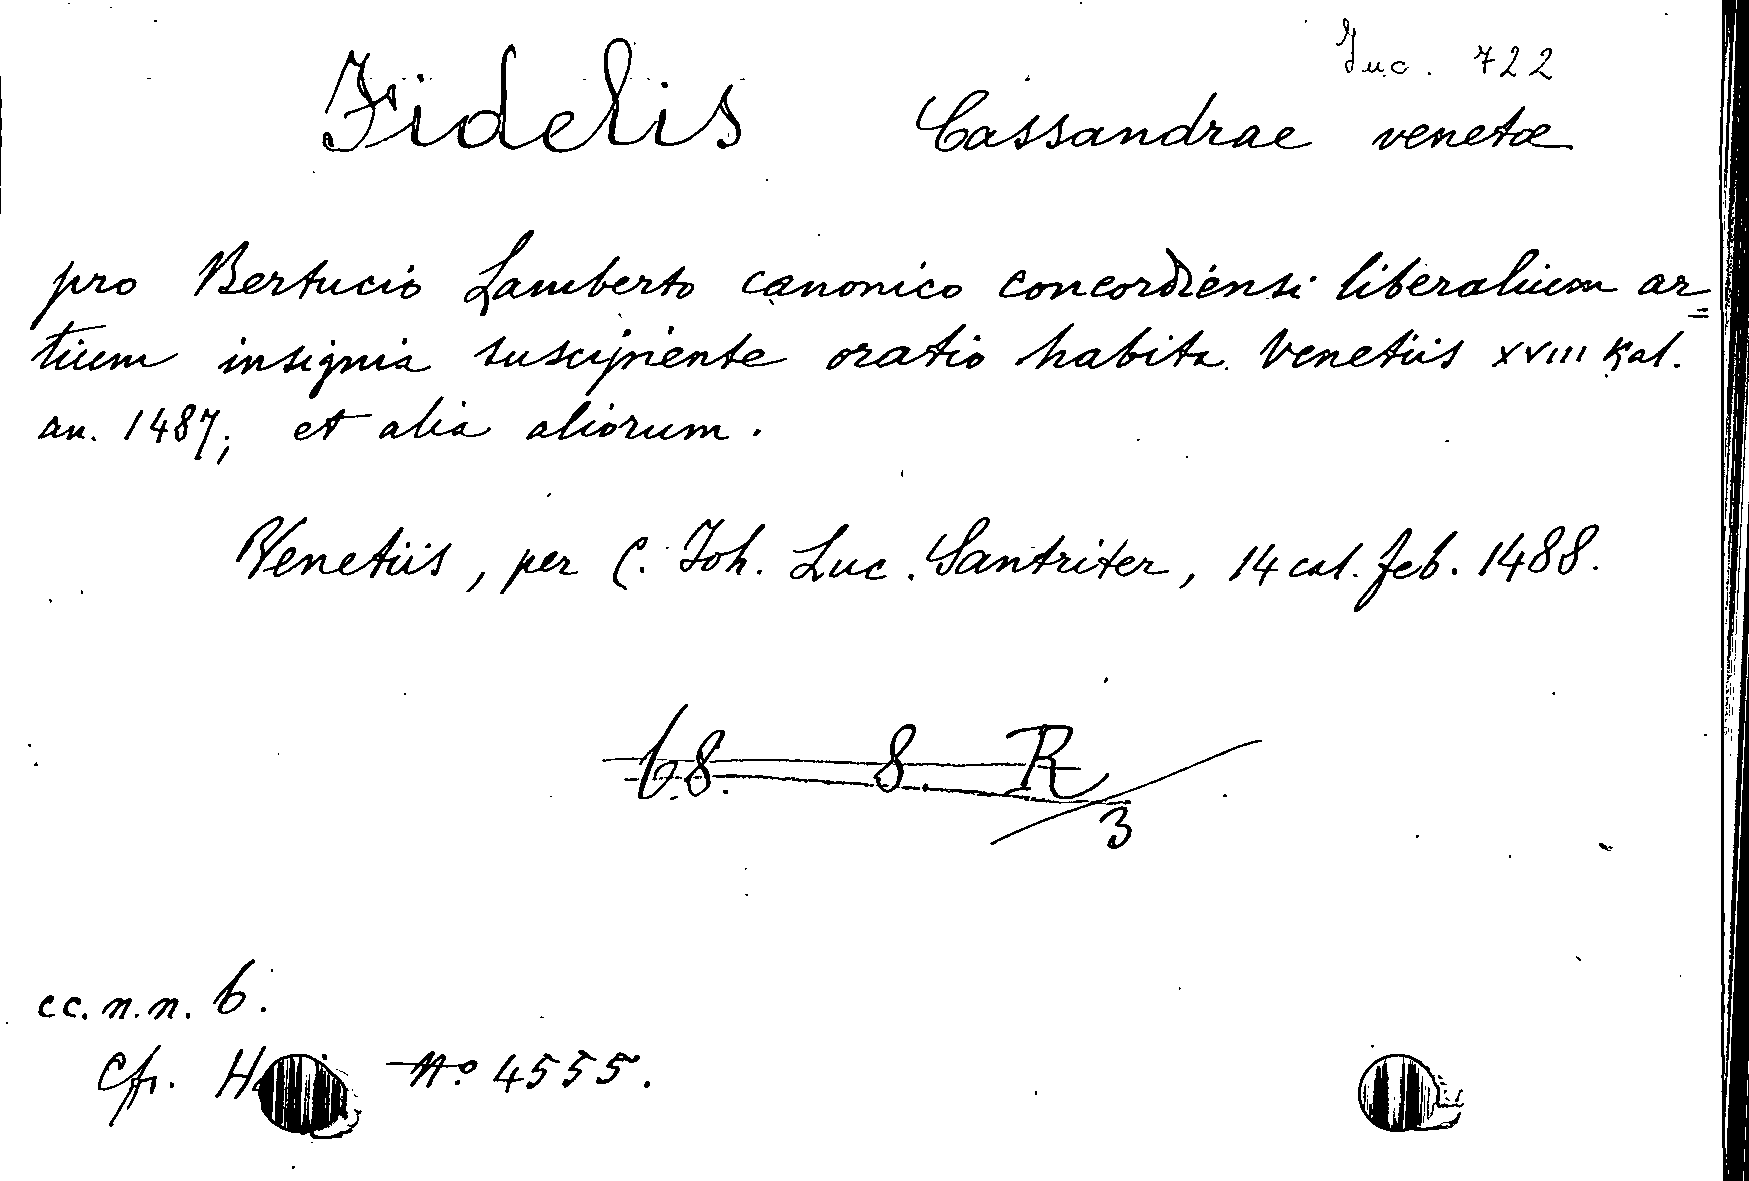 Inc. 722
Fidelis Cassandrae venetæ
pro Bertucio Lamberto canonico concordiensi liberalium ar=
tium insignia suscipiente oratio habita Venetiis XVIII Kal.
an. 1487; et alia aliorum.
Venetiis, per C. Joh. Luc. Santriter, 14 cal. feb. 1488.
68. 8. R
3
cc. n. n. 6.
Cfr. Nº 4555.